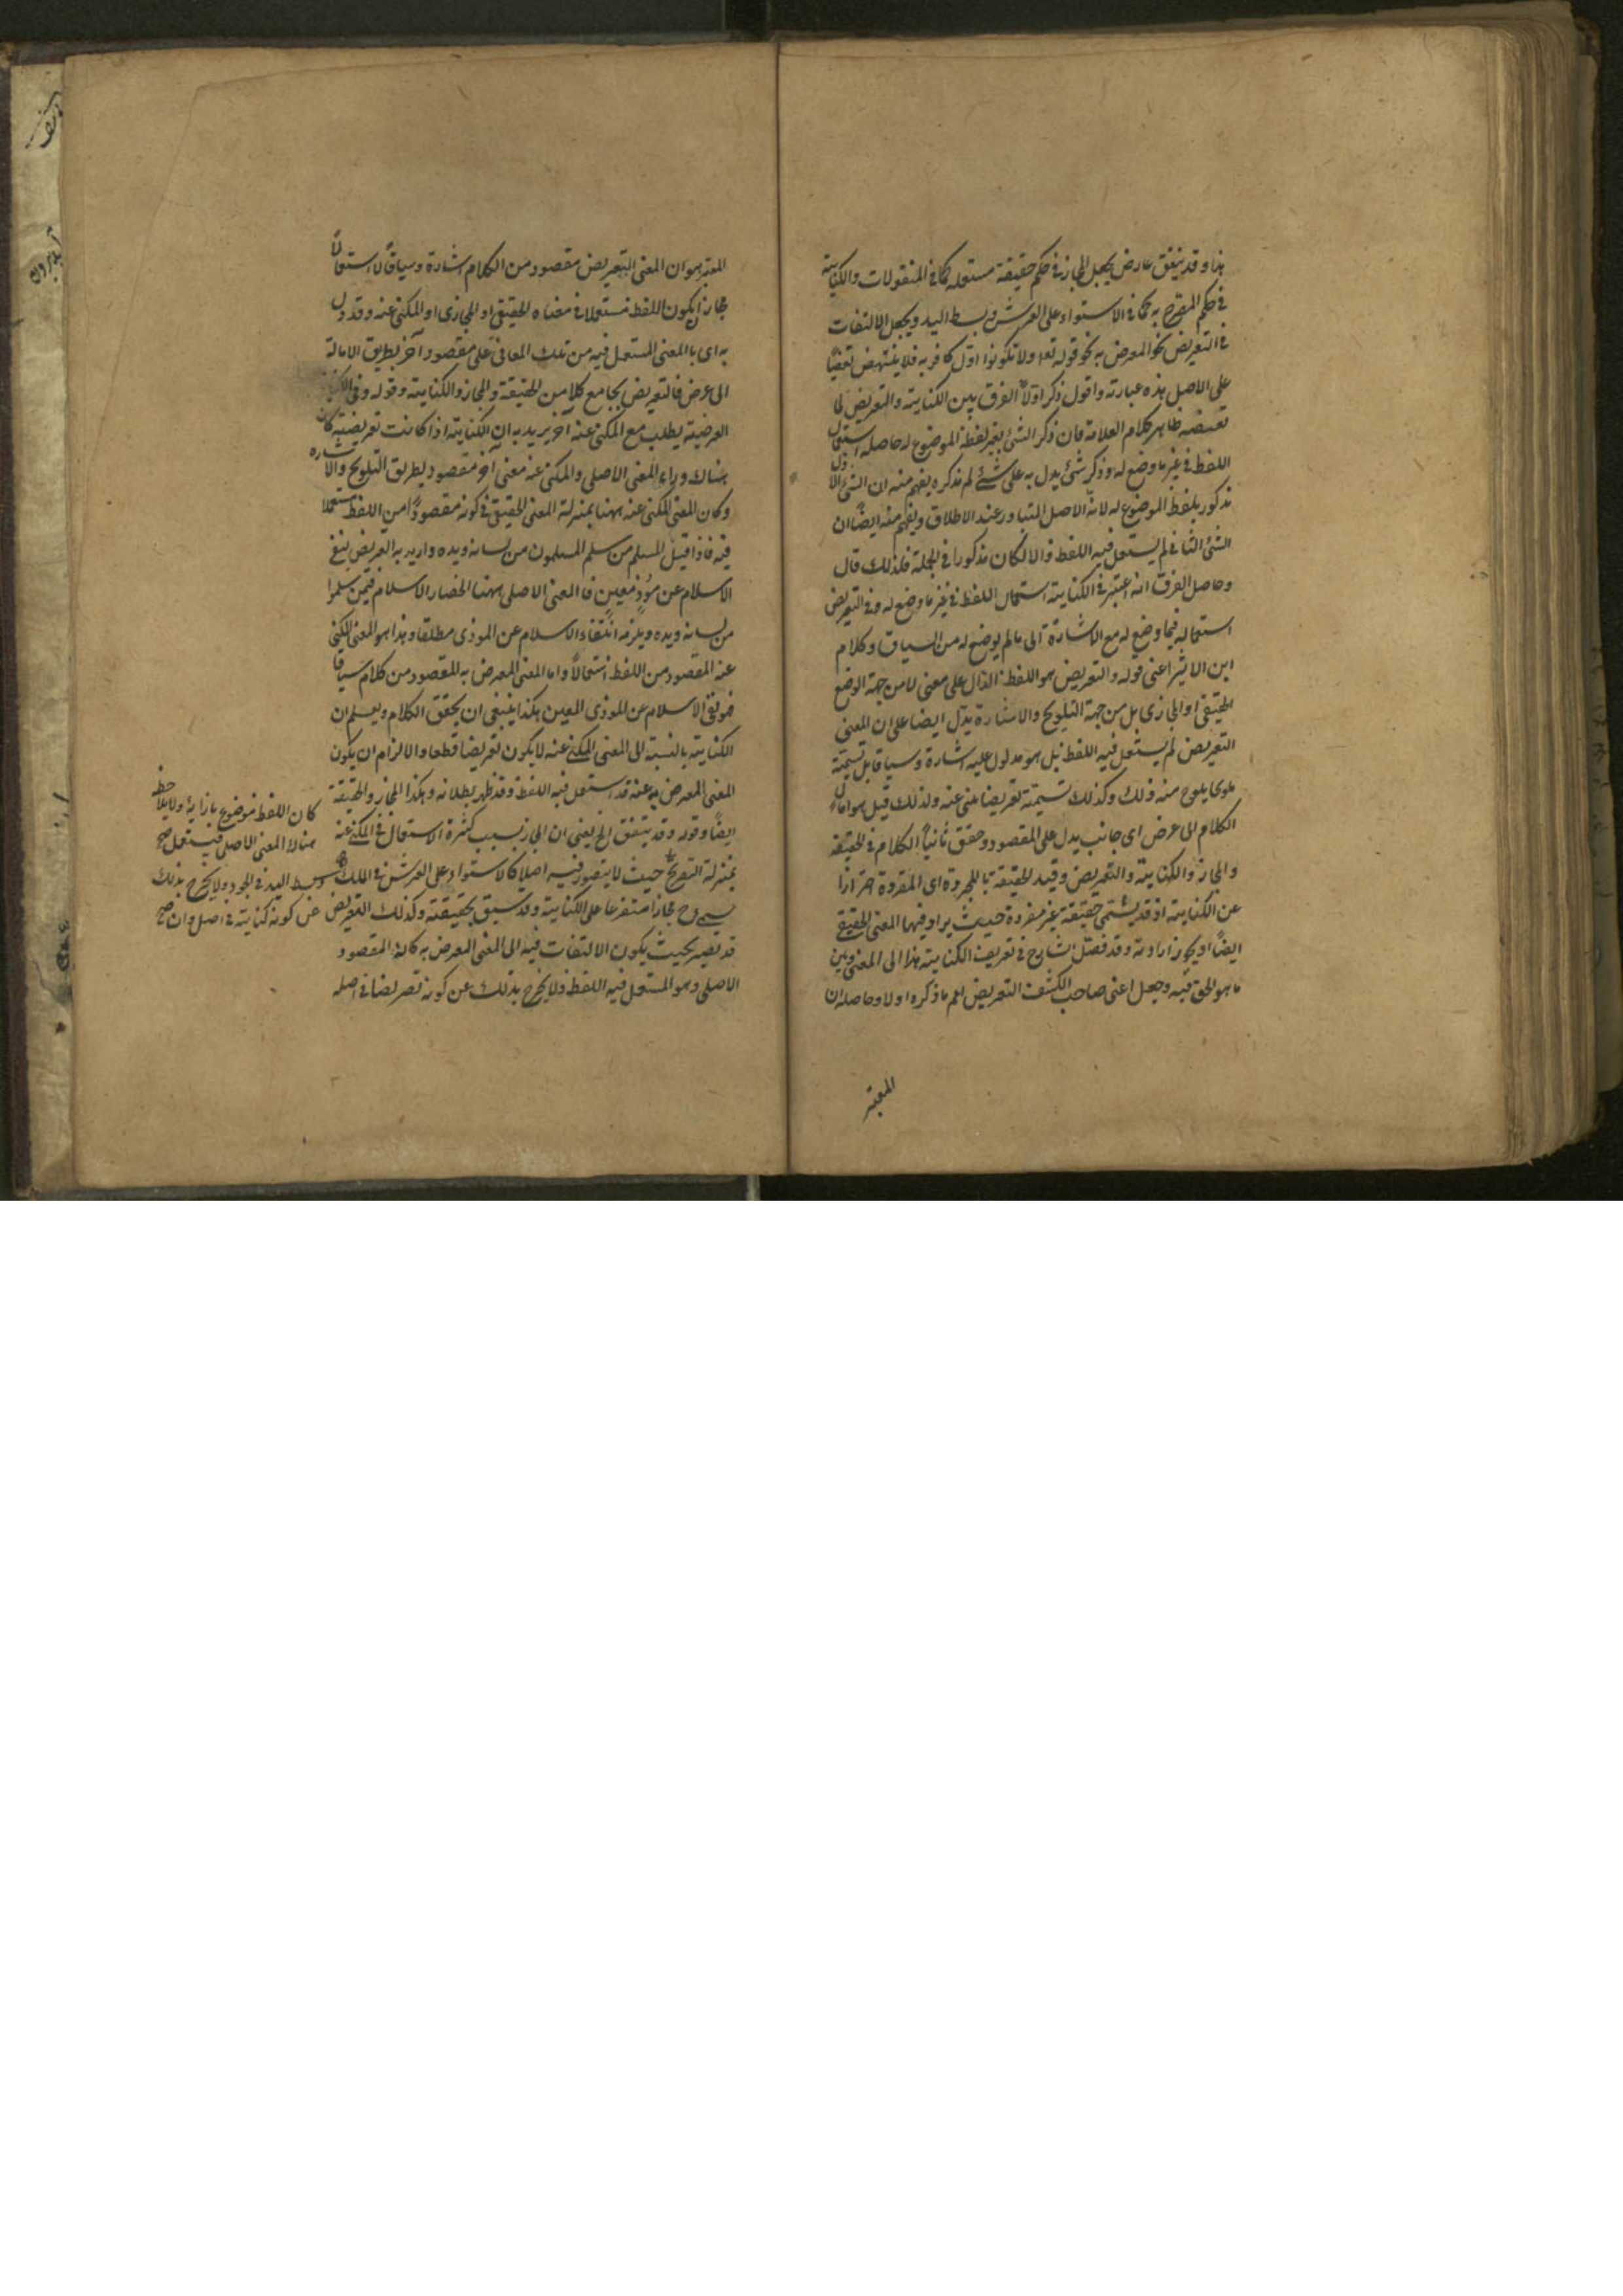 هذا وقد يتفق عارض يجعل المجاز في حكم حقيقة مستعملة كما في المنقولات والكناية
في حكم المصرح به كما في الاستواء على العرش وبسط اليد ويجعل الالتفات
في التعريض نحو المعرض به نحو قوله تعا ولا تكونوا اول كافر به فلا ينتهض نقضا
على الاصل هذه عبارته واقول ذكر اولا الفرق بين الكناية والتعريض لما
تضمنه ظاهر كلام العلامة فان ذكر الشئ بغير لفظه الموضوع له حاصله استعمال
اللفظ في غير ما وضع له وذكر شئ يدل به على شئ لم تذكره يفهم منه ان الشئ الاول
مذكور بلفظ الموضوع له لانه الاصل المتبادر عند الاطلاق ويفهم منه ايضا ان
الشئ الثاني لم يستعمل فيه اللفظ والا لكان مذكورا في الجملة فلذلك قال
وحاصل الفرق انه اعتبر في الكناية استعمال اللفظ في غير ما وضع له وفي التعريض
استعماله فيما وضع له مع الاشارة الى ما لم يوضع له من السياق وكلام
ابن الاثير اعنى قوله والتعريض هو اللفظ الدال على معنى لا من جهة الوضع
الحقيقي او المجازي بل من جهة التلويح والاشارة يدل ايضا على ان المعنى
التعريضي لم يستعمل فيه اللفظ بل هو مدلول عليه اشارة وسياقا بل تسميته
تلويحا يلوح منه ذلك وكذلك تسميته تعريضا ينبئ عنه ولذلك قيل هو امالة
الكلام الى عرض اى جانب يدل على المقصود وحقق ثانيا الكلام في الحقيقة
والمجاز والكناية والتعريض وقيد الحقيقة بالمجردة اى المفردة احترازا
عن الكناية اذ قد يسمى حقيقة غير مفردة حيث يراد فيها المعنى الحقيقي
ايضا او يجوز ارادته وقد فصل الشارح في تعريف الكناية هذا الى المعنى وبين
ما هو الحق فيه وجعل اعنى صاحب الكشف التعريض اعم ما ذكره اولا وحاصله ان
المعتبر
المعتبر هو ان المعنى التعريضي مقصود من الكلام اشارة وسياقا لا استعمالا
فجاز ان يكون اللفظ مستعملا في معناه الحقيقي او المجازي او المكنى عنه وقد دل
به اى بالمعنى المستعمل فيه من تلك المعاني على مقصود آخر بطريق الامالة
الى عرض فالتعريض يجامع كلا من الحقيقة والمجاز والكناية وقوله وفي الكناية
العرضية يطلب مع المكنى عنه آخر يريد به ان الكناية اذا كانت تعريضية كان
هناك وراء المعنى الاصلى والمكنى عنه معنى آخر مقصود بطريق التلويح والاشارة
وكان المعنى المكنى عنه ههنا بمنزلة المعنى الحقيقي في كونه مقصودا من اللفظ مستعملا
فيه فاذا قيل المسلم من سلم المسلمون من لسانه ويده واريد به التعريض بنفى
الاسلام عن مؤذ معين فالمعنى الاصلى ههنا انحصار الاسلام فيمن سلموا
من لسانه ويده ويلزمه انتفاء الاسلام عن الموذى مطلقا وهذا هو المعنى المكنى
عنه المقصود من اللفظ استعمالا واما المعنى المعرض به المقصود من كلام سياقا
فهو نفى الاسلام عن الموذى المعين هكذا ينبغى ان يحقق الكلام ويعلم ان
الكناية بالنسبة الى المعنى المكنى عنه لا يكون تعريضا قطعا والا لزام ان يكون
المعنى المعرض به عنه قد استعمل فيه اللفظ وقد ظهر بطلانه وهكذا المجاز والحقيقة
ايضا وقوله وقد يتفق الخ يعنى ان المجاز بسبب كثرة الاستعمال في المكنى عنه
بمنزلة التصريح حيث لا يتصور فيه اصلا كالاستواء على العرش في الملك وبسط اليد في الجود ولا يخرج بذلك
يسمى ح مجازا متفرعا على الكناية وقد سبق تحقيقته وكذلك التعريض عن كونه كناية في اصل وان صح
قد يصير بحيث يكون الالتفات فيه الى المعنى المعرض به كانه المقصود
الاصلى وهو المستعمل فيه اللفظ ولا يخرج بذلك عن كونه تعريضا في اصله
كان اللفظ موضوع بازائه ولا يلاحظ
هناك المعنى الاصلى فيستعمل صح